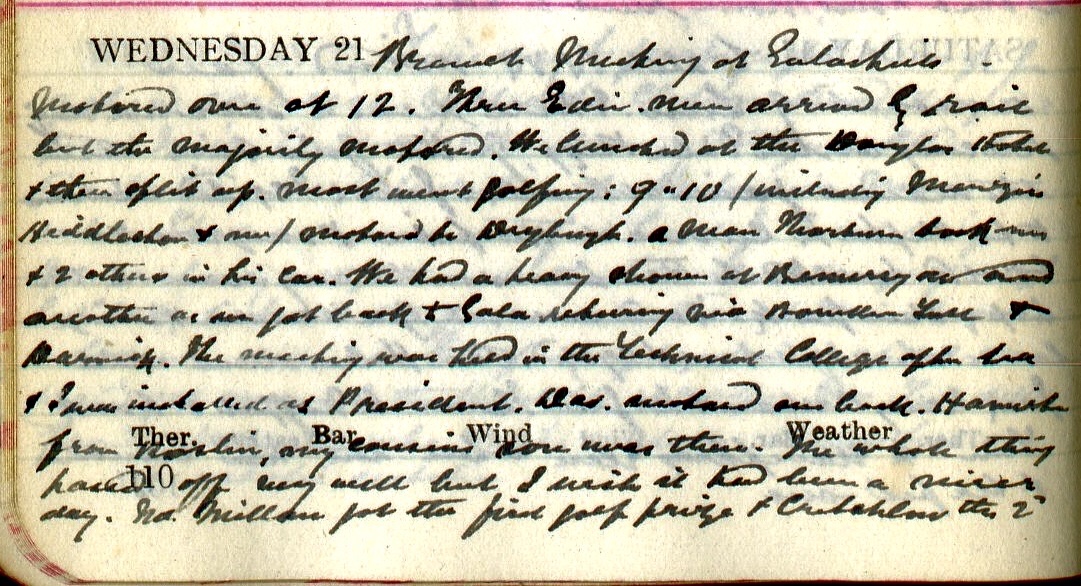 WEDNESDAY 21 Branch Meeting at Galashiels -
Motored over at 12. Three Edin. men arrived by rail
but the majority motored. We lunched at the Douglas Hotel
& then split up. Most went golfing: 9 or 10 (including Menzies
Hiddleston & me) motored to Dryburgh. A man Thorburn took me
& 2 others in his car. We had a heavy shower at Bemersyde and
another as we got back to Gala returning via Bowden &
Darnick. The meeting was held in the Technical College after tea
& I was installed as President. Das. motored me back. Hamish
from Roslin, my cousins son was there. The whole thing
Ther. Bar. Wind Weather
passed off very well but I wish it had been a nicer
110
day. Millar got the first golf prize & Critchlow the 2nd